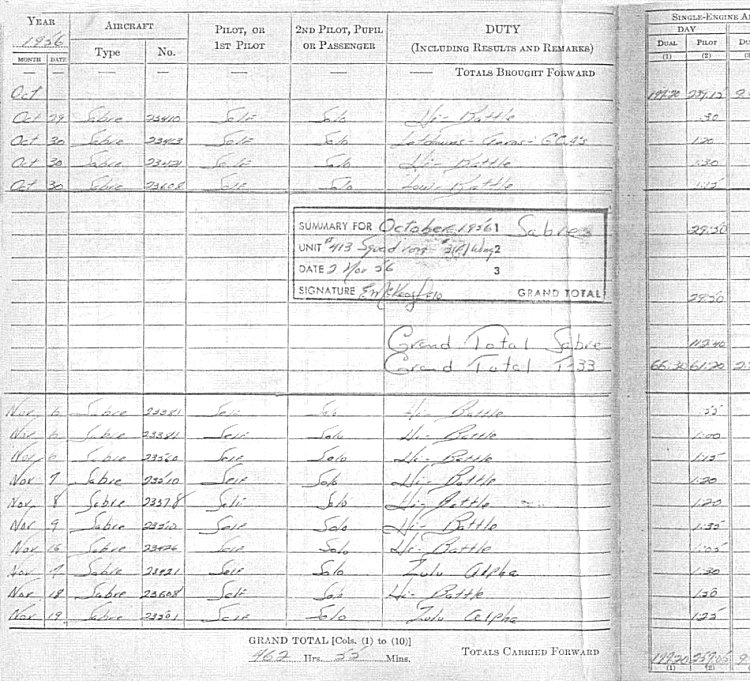 YEAR AIRCRAFT PILOT, OR 2ND PILOT, PUPIL DUTY SINGLE-ENGINE
1956 1ST PILOT OR PASSENGER (INCLUDING RESULTS AND REMARKS) DAY
Type No. DUAL PILOT
MONTH DATE (1) (2)
— — — — — — TOTALS BROUGHT FORWARD
Oct
Oct 29 Sabre 23410 Self Solo Hi-Battle :30
Oct 30 Sabre Self Solo Letdowns- GCA's 1:20
Oct 30 Sabre Self Solo Hi-Battle 1:30
Oct 30 Sabre 23608 Self Solo Low-Battle 1:15
SUMMARY FOR October 1956 1 Sabres 29:50
UNIT #413 Squadron Wing 2
DATE 2 Nov 56 3
SIGNATURE GRAND TOTAL 29:50
Grand Total Sabre 112:40
Grand Total T-33 66:30 61:20
Nov 6 Sabre 23381 Self Solo Hi-Battle :55
Nov 6 Sabre Self Solo Hi-Battle 1:00
Nov 6 Sabre Self Solo Hi-Battle 1:15
Nov 7 Sabre Self Solo Hi-Battle 1:20
Nov 8 Sabre 23578 Self Solo Hi-Battle 1:20
Nov 9 Sabre Self Solo Hi-Battle 1:35
Nov 16 Sabre 23426 Self Solo Hi-Battle 1:05
Nov Sabre 23421 Self Solo Zulu Alpha 1:30
Nov 18 Sabre 23608 Self Solo Hi-Battle
Nov 19 Sabre Self Solo Zulu Alpha 1:25
GRAND TOTAL [Cols. (1) to (10)]
462 Hrs. 55 Mins. TOTALS CARRIED FORWARD 259:05
(1) (2)